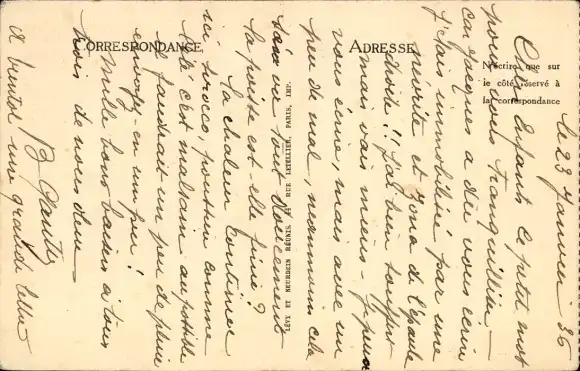 CORRESPONDANCE
ADRESSE
N'écrire que sur
le côté réservé à
la correspondance
LÉVY ET NEURDEIN RÉUNIS, 44 RUE LETELLIER, PARIS, IMP.
le 23 Janvier 36
Chers Enfants, ce petit mot
pour vous tranquilliser,
car Jacques a dû vous écrire
j'étais immobilisée par une
névrite et Zona de l'épaule
droite! J'ai bien souffert
mais vais mieux - Je peux
vous écrire, mais avec un
peu de mal, néanmoins cela
va tout doucement
la poste est-elle finie?
la chaleur continue,
ni sirocco, pourtant comme
cela c'est malsain au possible
il faudrait un peu de pluie
envoyez-en un peu!
Mille bons baisers à tous
trois de nous deux
à bientôt une grande lettre